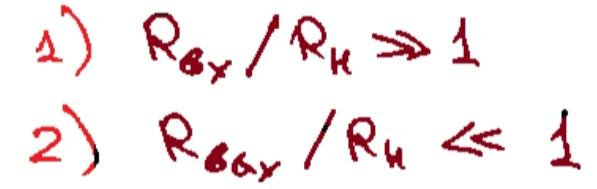 1) Rвх / Rн >> 1
2) Rвых / Rн << 1